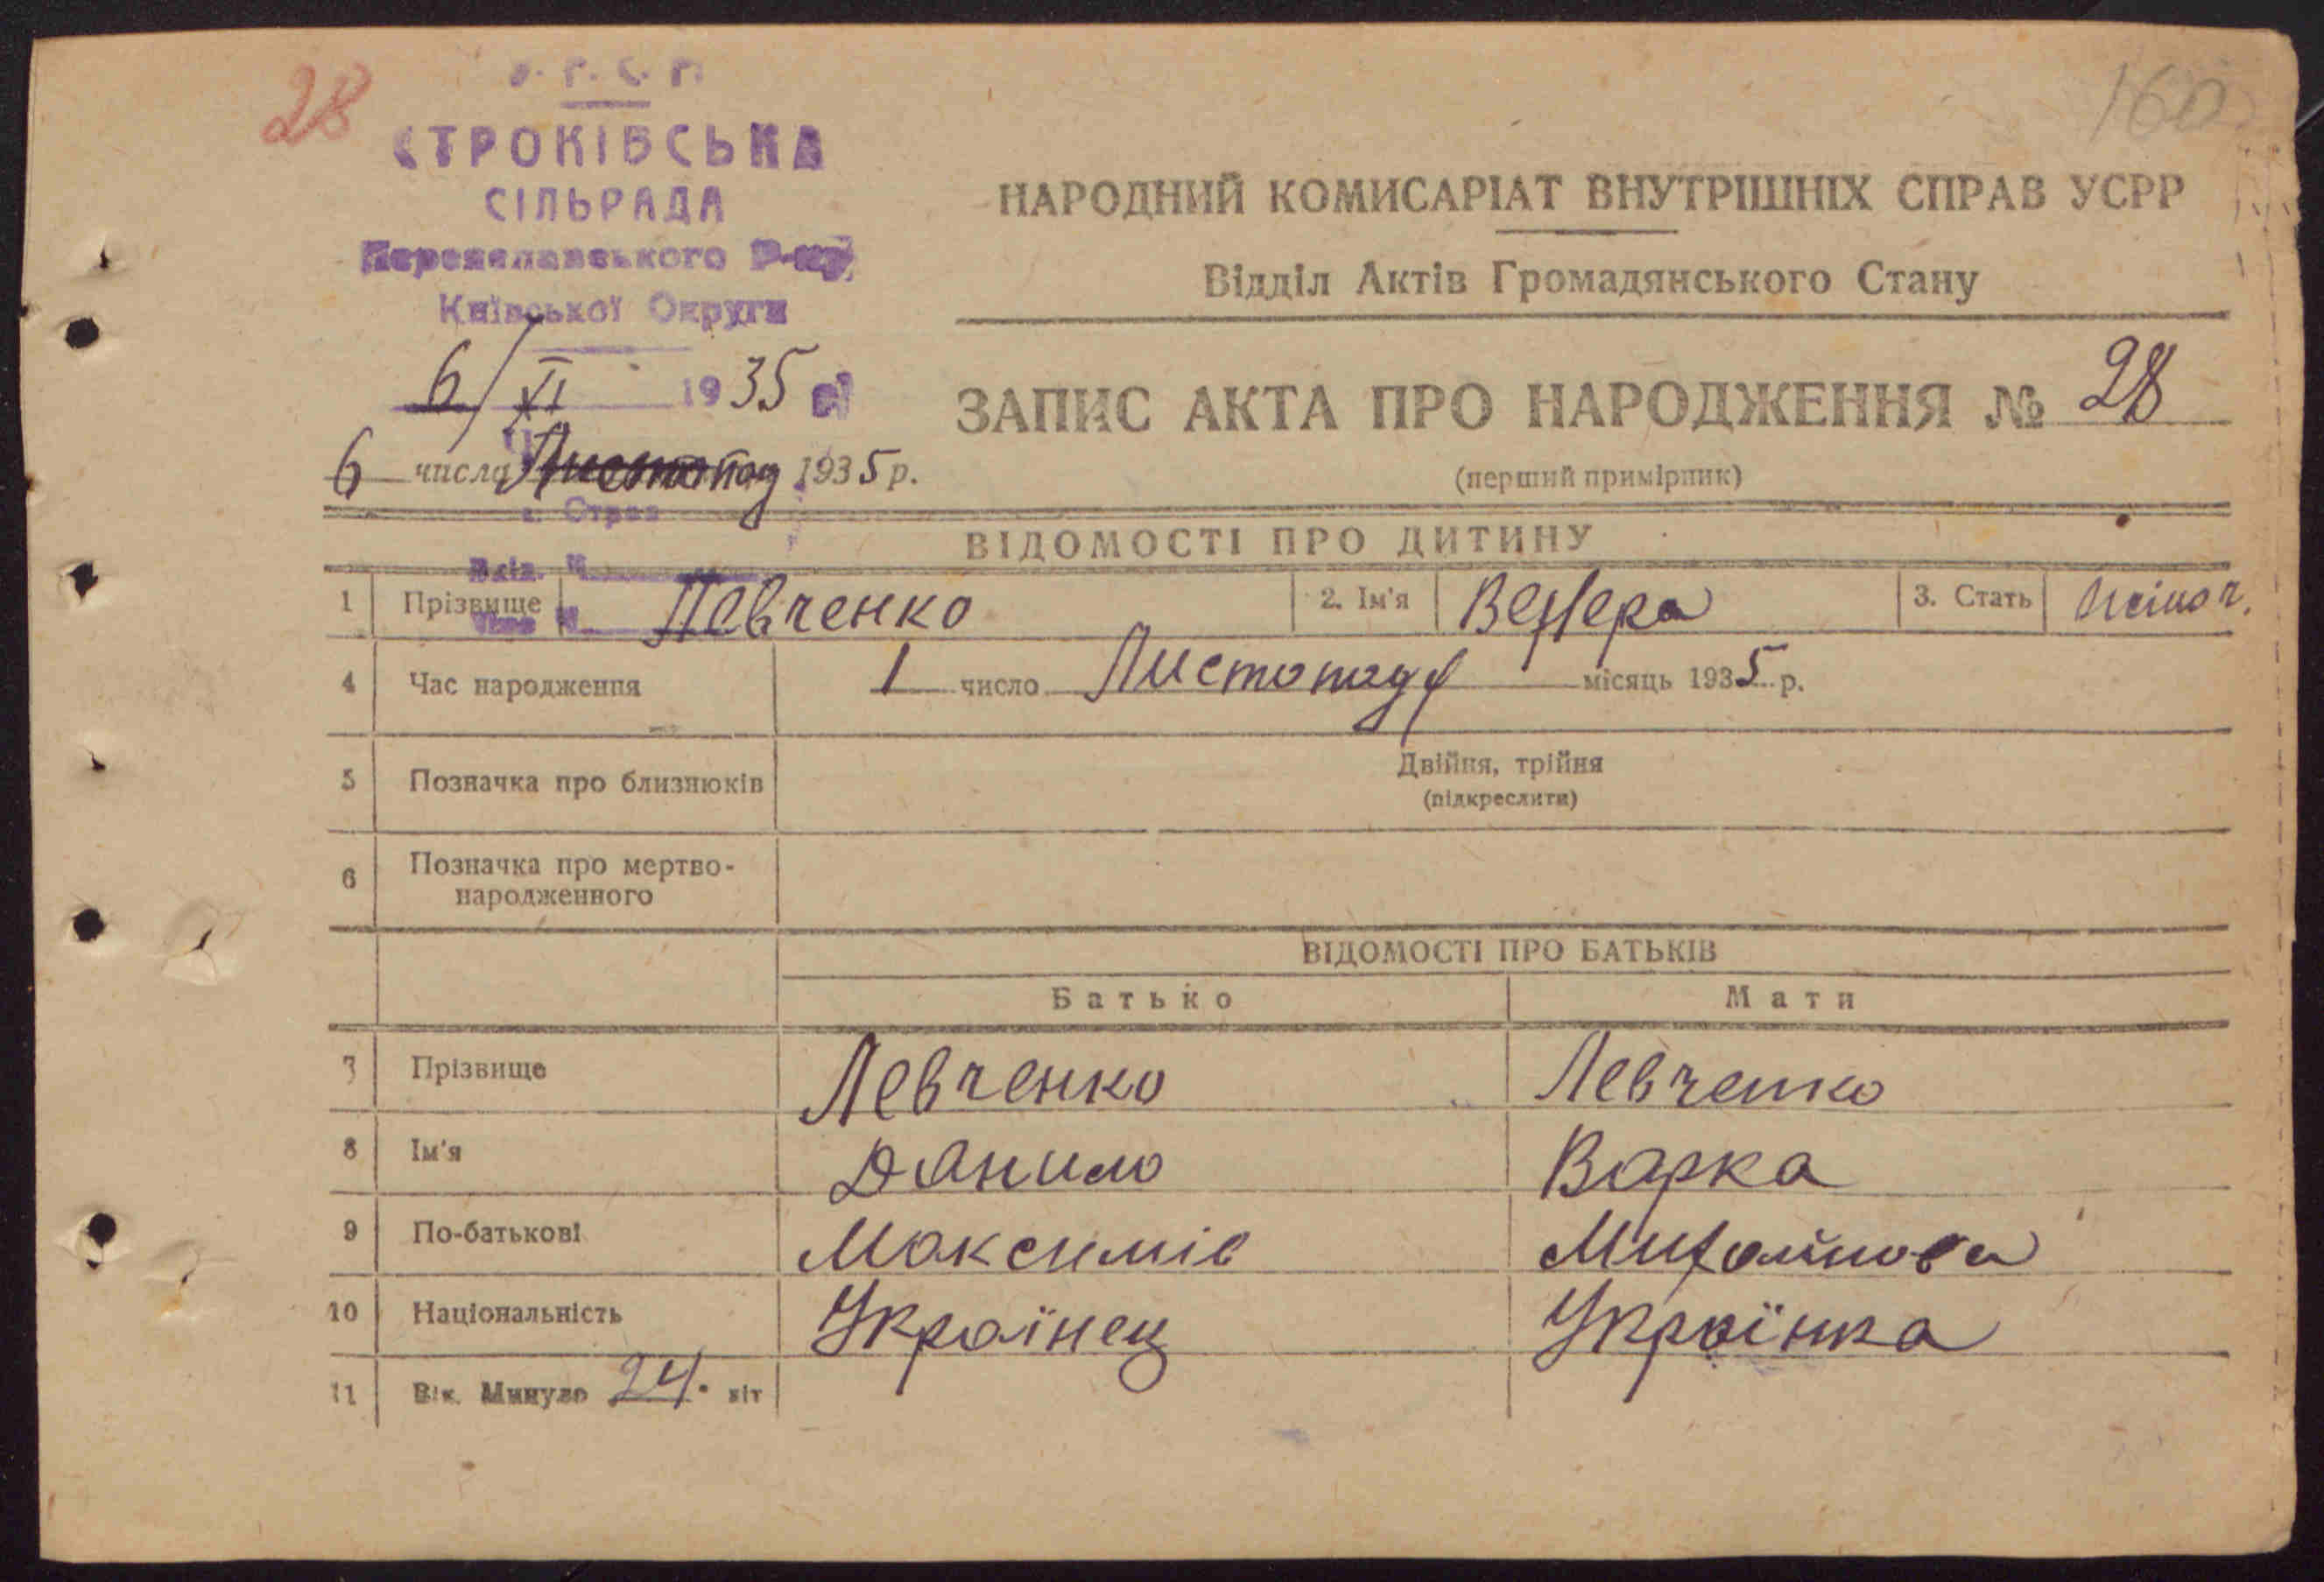 28
160
У. Р. С. Р.
СТРОКІВСЬКА
СІЛЬРАДА
Переяславського Р-ну
Київської Округи
6/XI 1935 р.
6 числа Листопад 1935 р.
НАРОДНИЙ КОМИСАРІАТ ВНУТРІШНІХ СПРАВ УСРР
Відділ Актів Громадянського Стану
ЗАПИС АКТА ПРО НАРОДЖЕННЯ № 28
(перший примірник)
ВІДОМОСТІ ПРО ДИТИНУ
1 Прізвище Левченко 2. Ім'я 3. Стать Жіноч.
4 Час народження 1 число Листопаду місяць 1935 р.
5 Позначка про близнюків Двійня, трійня
(підкреслити)
6 Позначка про мертво-
народженного
ВІДОМОСТІ ПРО БАТЬКІВ
Батько Мати
7 Прізвище Левченко Левченко
8 Ім'я Данило Варка
9 По-батькові Максимів Михайлова
10 Національність Українец Українка
11 Вік. Минуло 24. літ